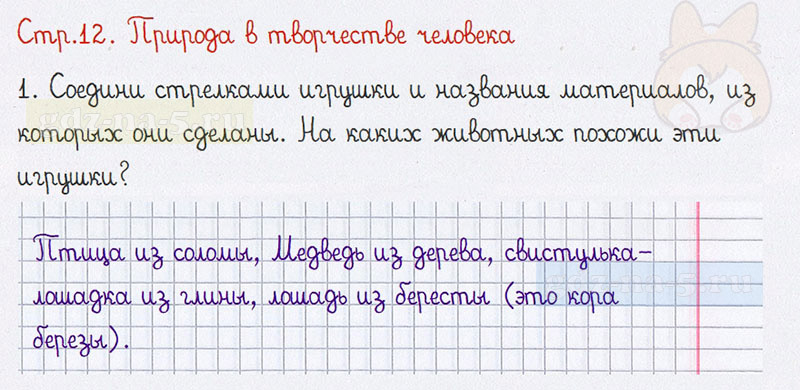 Стр.12. Природа в творчестве человека
1. Соедини стрелками игрушки и названия материалов, из
которых они сделаны. На каких животных похожи эти
игрушки?
Птица из соломы, Медведь из дерева, свистулька-
лошадка из глины, лошадь из бересты (это кора
березы).
gdz-na-5.ru